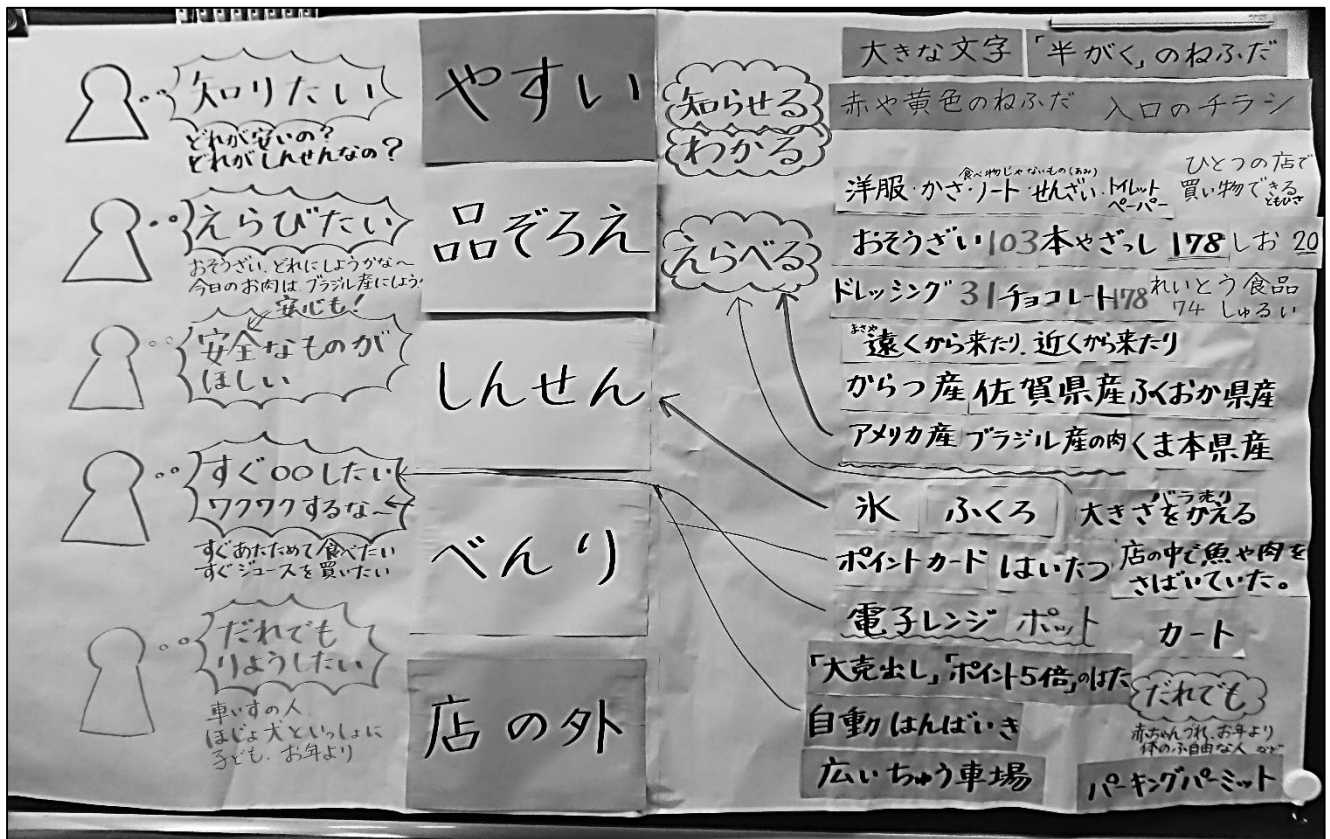 知りたい
どれが安いの？
どれがしんせんなの？
えらびたい
おそうざい、どれにしようかな〜
今日のお肉は、ブラジル産にしよう
安心も！
安全なものが
ほしい
すぐ○○したい
ワクワクするな〜
すぐあたためて食べたい
すぐジュースを買いたい
だれでも
りようしたい
車いすの人、
ほじょ犬といっしょに
子ども、お年より
やすい
品ぞろえ
しんせん
べんり
店の外
知らせる
わかる
えらべる
大きな文字 「半がく」のねふだ
赤や黄色のねふだ 入口のチラシ
食べ物じゃないもの(あみ)
洋服・かさ・ノート・せんざい・トイレット
ペーパー
ひとつの店で
買い物できる
ともひさ
おそうざい103 本やざっし 178 しお 20
ドレッシング 31 チョコレート178 れいとう食品
74 しゅるい
まさや
遠くから来たり、近くから来たり
からつ産 佐賀県産 ふくおか県産
アメリカ産 ブラジル産の肉 くま本県産
氷 ふくろ バラ売り
大きさをかえる
ポイントカード はいたつ 店の中で魚や肉を
さばいていた。
電子レンジ ポット カート
「大売出し」「ポイント5倍」のはた
自動はんばいき
広いちゅう車場
だれでも
赤ちゃんづれ、お年より
体のふ自由な人 など
パーキングパーミット